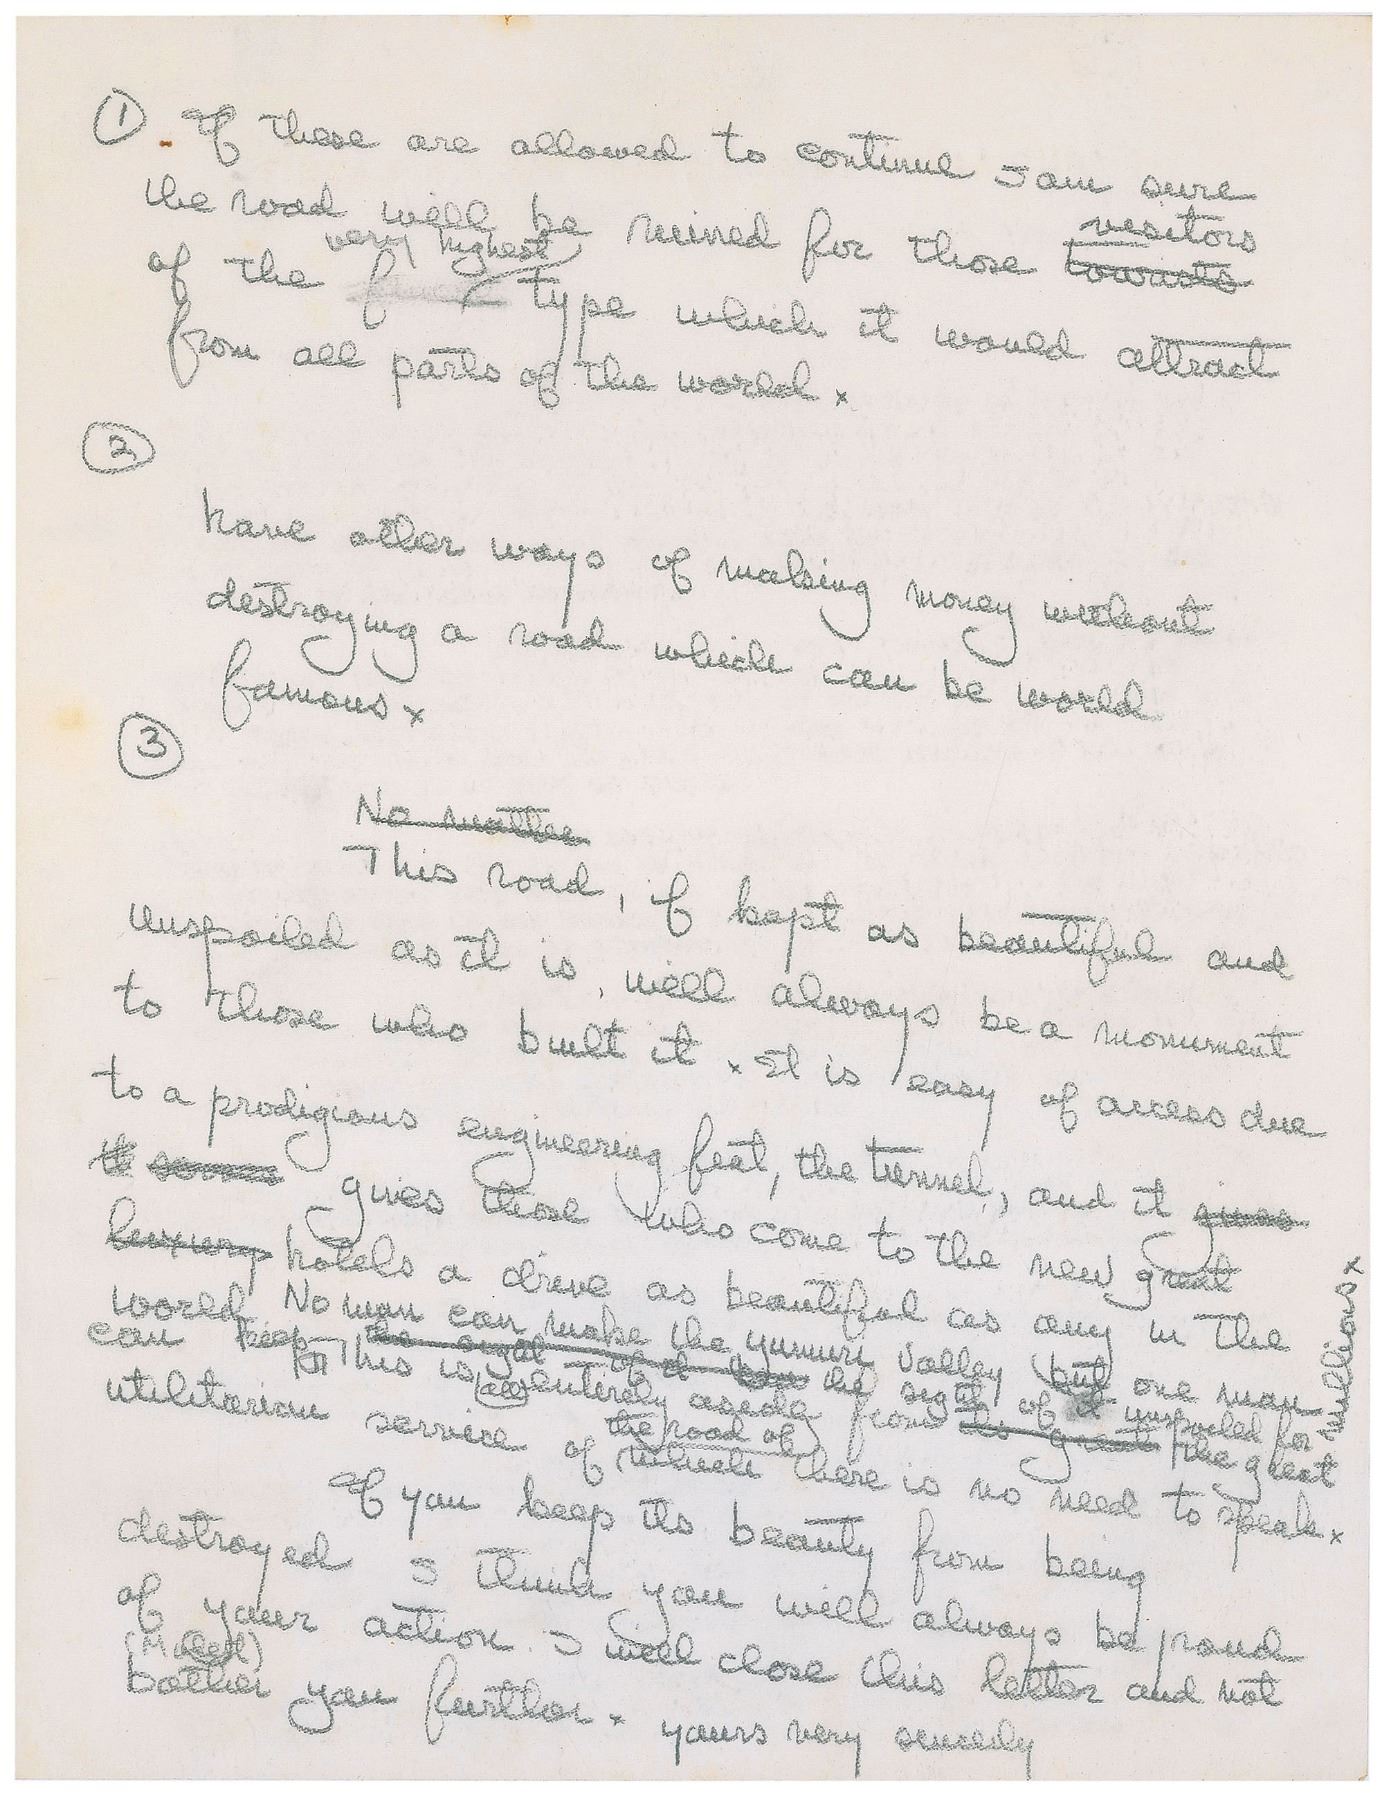 ① If these are allowed to continue I am sure
the road will be ruined for those tourists
visitors
of the
very highest
type which it would attract
from all parts of the world. x
②
have other ways of making money without
destroying a road which can be world
famous x
③
No matter
This road, if kept as beautiful and
unspoiled as it is, will always be a monument
to those who built it. x It is easy of access due
to a prodigious engineering feat, the tunnel, and it gives
gives those who come to the new great
luxury hotels a drive as beautiful as any in the
world. No man can make the yumuri valley but one man
can keep the sight of it unspoiled for
millions x
This is entirely aside from the great the great
utilitarian service of which there is no need to speak. x
the road of
If you keep its beauty from being
destroyed I think you will always be proud
of your action. I will close this letter and not
bother you further. x yours very sincerely